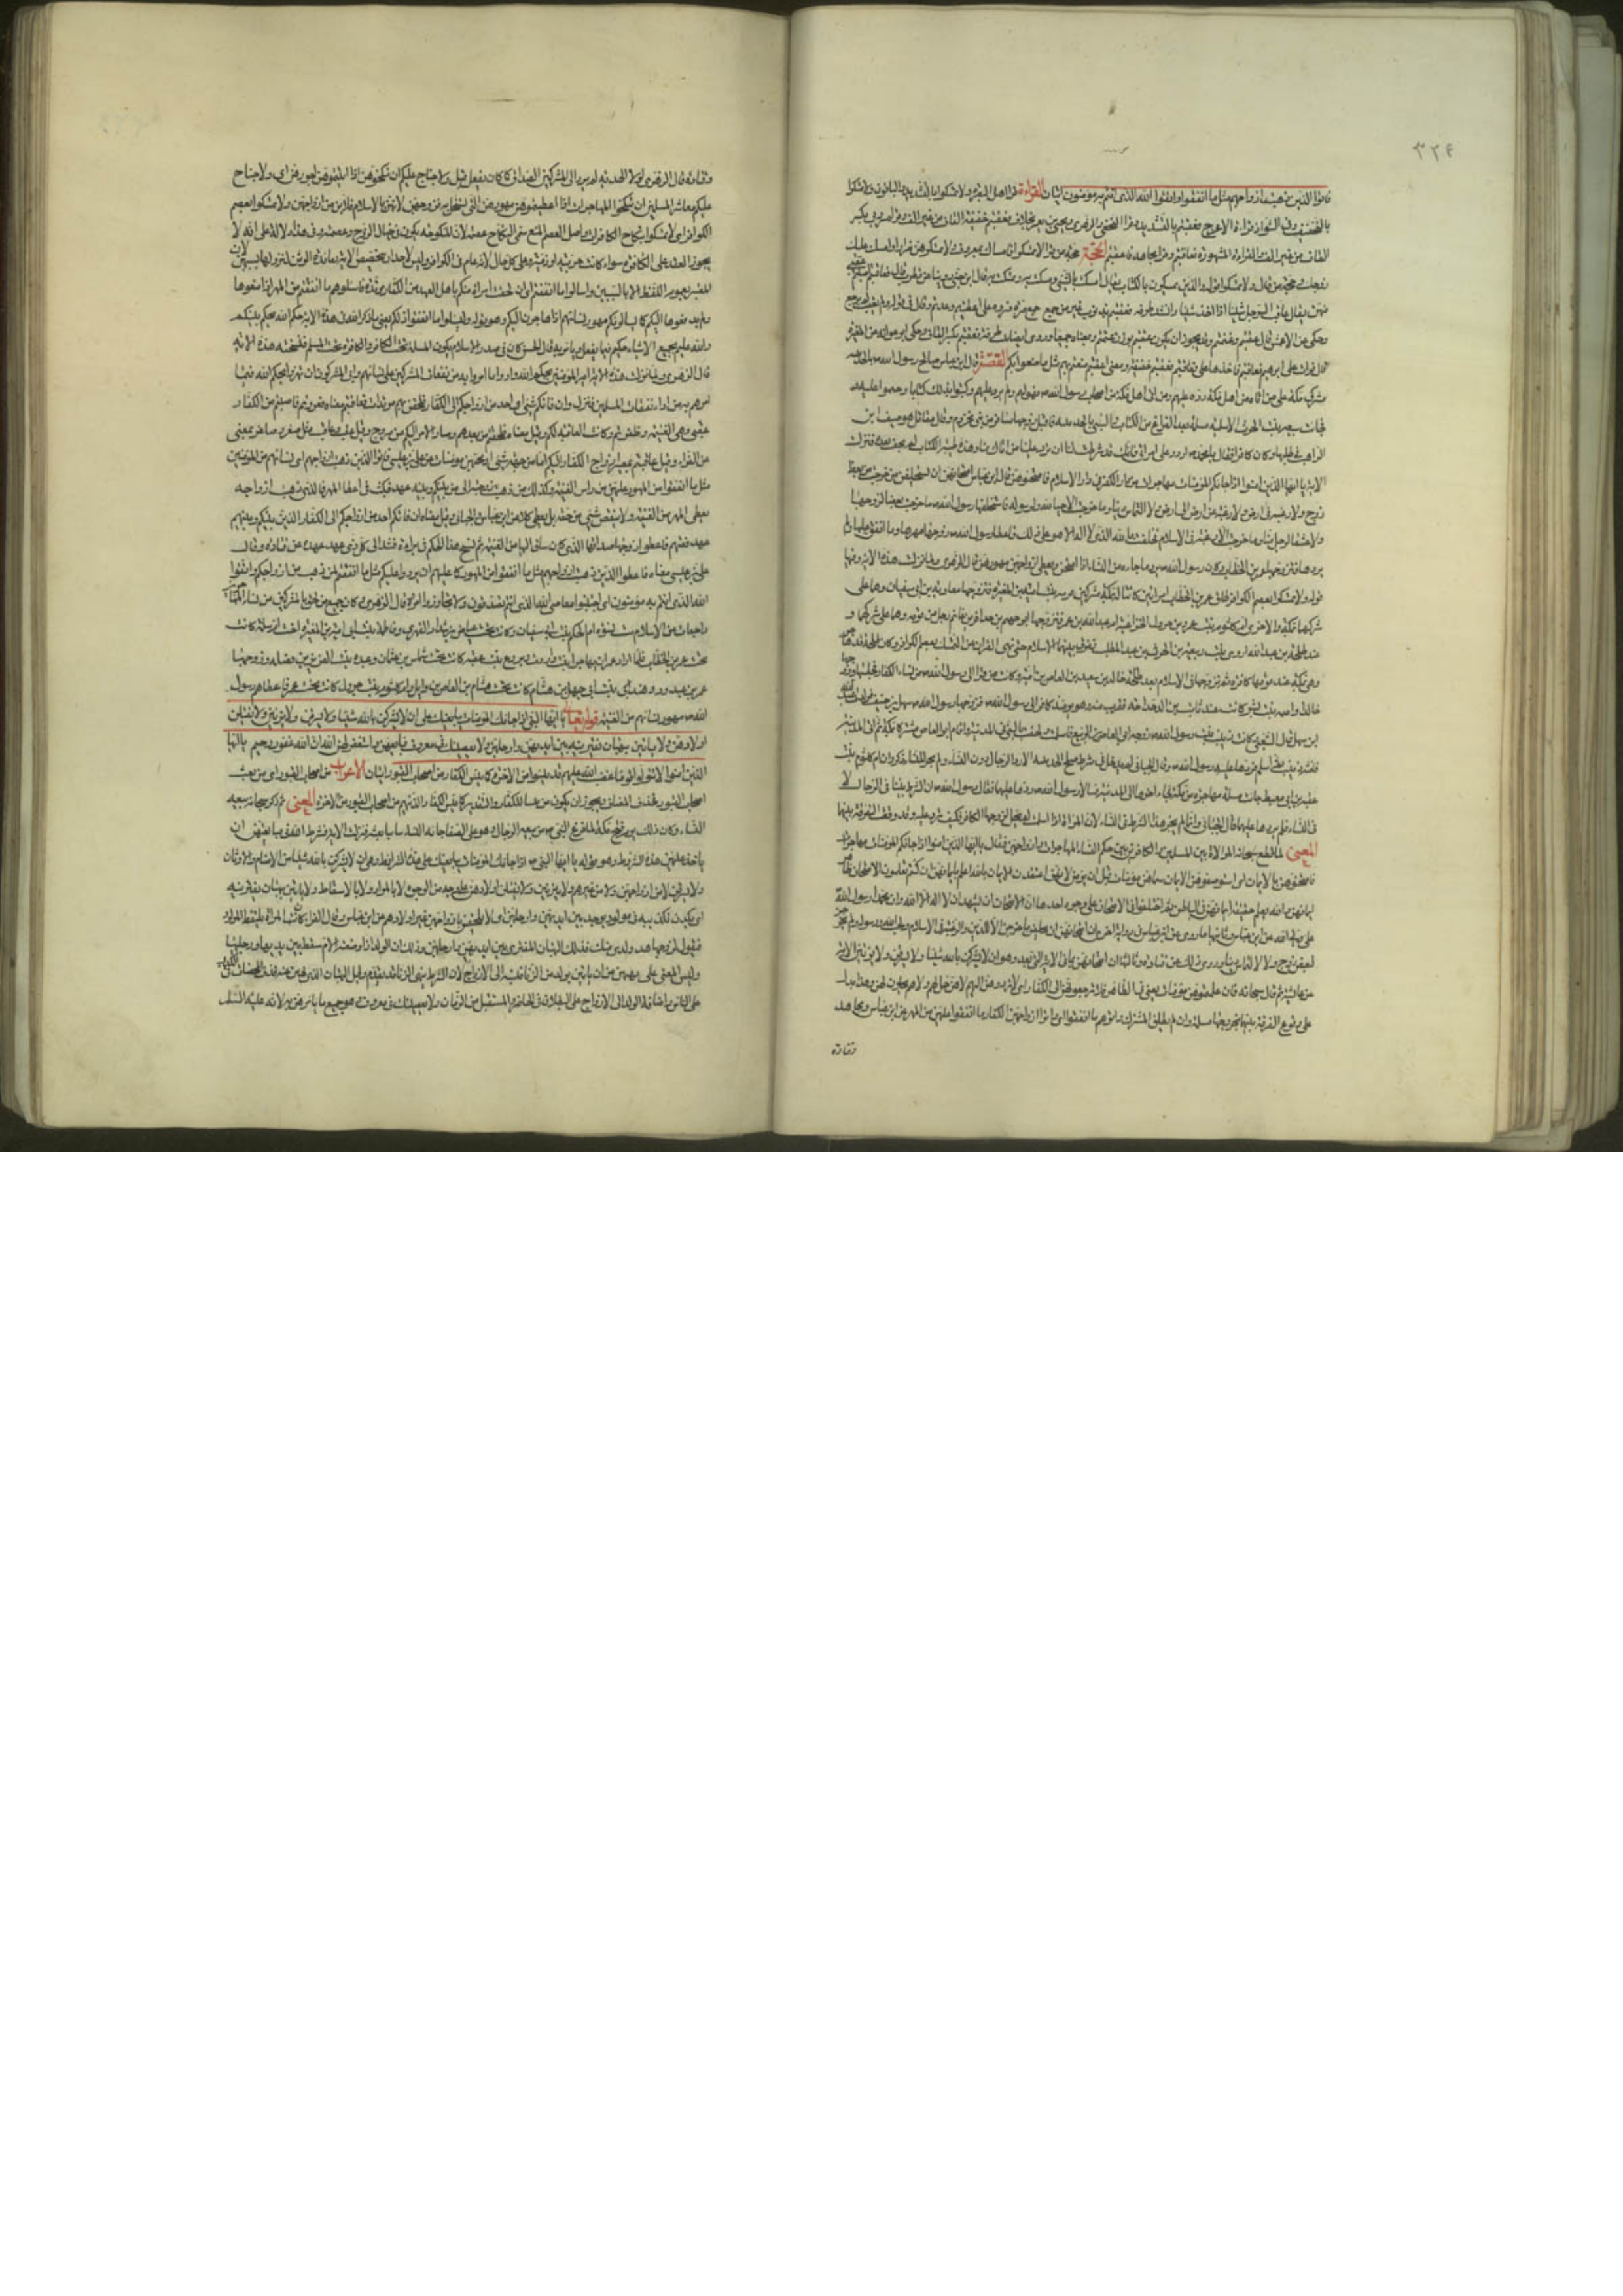 فاتوا الذين ذهبت ازواجهم مثل ما انفقوا واتقوا الله الذى انتم به مؤمنون ايتان القراءة قرا اهل البصرة ولا تمسكوا بالتشديد والباقون ولا تمسكوا
بالتخفيف وفى الشواذ قراءة الاعرج فعقبتم بالتشديد وقرا النخعى والزهرى ويحيى بن يعمر بخلاف فعقبتم خفيفة القاف من غير الف وقرا مسروق بكسر
القاف من غير الف والقراءة المشهورة فعاقبتم وقرا مجاهد فاعقبتم الحجة حجة من قرا لا تمسكوا فامساك بمعروف ولا تمسكوهن ضرارا وامسك عليك
زوجك وحجة من قال ولا تمسكوا قوله والذين يمسكون بالكتاب يقال امسكت بالشى ومسكت به وتمسكت به قال ابن جنى روينا عن قطرب قال فعاقبتم اصبتم عقبى
منهن يقال عاقب الرجل شيئا اذا اخذ شيئا
وحكى عن الاعمش قال عقبتم وغنمتم وقد يجوز ان يكون عقبتم بوزن غنمتم وبمعناه جميعا
القصة قال ابن عباس صالح رسول الله ص بالحديبيه
مشركى مكة على ان من اتاه من اهل مكة رده عليهم ومن اتى اهل مكة من اصحاب رسول الله ص فهو لهم ولم يردوه عليهم وكتبوا بذلك كتابا وختموا عليه
فجاءت سبيعه بنت الحرث الاسلميه مسلمة بعد الفراغ من الكتاب والنبى بالحديبيه فاقبل زوجها مسافر من بنى مخزوم وقال مقاتل هو صيفى ابن
الراهب فى طلبها وكان كافرا فقال يا محمد اردد على امراتى فانك قد شرطت لنا ان ترد علينا من اتاك منا وهذه طينة الكتاب لم تجف بعد فنزلت
الاية يا ايها الذين امنوا اذا جاءكم المؤمنات مهاجرات من دار الكفر الى دار الاسلام فامتحنوهن قال ابن عباس امتحانهن ان يستحلفن ما خرجت من بغض
زوج ولا رغبة عن ارض الى ارض ولا التماس دنيا وما خرجت الا حبا لله ولرسوله فاستحلفها رسول الله ص ما خرجت بغضا لزوجها
ولا عشقا لرجل منا وما خرجت الا رغبة فى الاسلام فحلفت بالله الذى لا اله الا هو على ذلك فاعطى رسول الله ص زوجها مهرها وما انفق عليها ولم
يردها عليه فتزوجها عمر بن الخطاب وكان رسول الله ص يرد من جاءه من الرجال ويحبس من جاءه من النساء اذا امتحن ويعطى ازواجهن مهورهن قال الزهرى ولما نزلت هذه الاية وفيها
قوله ولا تمسكوا بعصم الكوافر طلق عمر بن الخطاب امراتين كانتا له بمكة مشركتين قريبة بنت ابى امية بن المغيرة فتزوجها معاوية بن ابى سفيان وهما على
شركهما بمكة والاخرى ام كلثوم بنت عمرو بن جرول الخزاعية ام عبد الله بن عمر فتزوجها ابو جهم بن حذافة بن غانم رجل من قومه وهما على شركهما و
عند طلحة بن عبد الله اروى بنت ربيعة بن الحرث بن عبد المطلب ففرق بينهما الاسلام حين نهى القران عن التمسك بعصم الكوافر وكان طلحة قد هاجر
وهى بمكة عند قومها كافرة ثم تزوجها فى الاسلام بعد طلحة خالد بن سعيد بن العاص بن امية وكانت ممن فر الى رسول الله ص من نساء الكفار فحبسها وزوجها
خالدا واميمة بنت بشر كانت عند ثابت بن الدحداحة ففرت منه وهو يومئذ كافر الى رسول الله ص فزوجها رسول الله ص سهل بن حنيف فولدت عبد الله
بن سهل قال الشعبى وكانت زينب بنت رسول الله ص زوجة ابى العاص بن الربيع فاسلمت ولحقت بالنبى فى المدينة واقام ابو العاص مشركا بمكة ثم اتى المدينة
فامنته زينب ثم اسلم فردها عليه رسول الله ص وقال الجبائى لم يدخل فى شرط صلح الحديبيه الا رد الرجال دون النساء ولم يجر للنساء ذكر وان ام كلثوم بنت
عقبة بن ابى معيط جاءت مسلمة مهاجرة من مكة فجاء اخوها الى المدينة فسالا رسول الله ص ردها عليهما فقال رسول الله ص ان الشرط بيننا فى الرجال لا
فى النساء فلم يردها عليهما قال الجبائى وانما لم يجر هذا الشرط فى النساء لان المراة اذا اسلمت لم تحل لزوجها الكافر فكيف ترد عليه وقد وقعت الفرقة بينهما
المعنى لما قطع سبحانه الموالاة بين المسلمين والكافرين بين حكم النساء المهاجرات وازواجهن فقال يا ايها الذين امنوا اذا جاءكم المؤمنات مهاجرات
فامتحنوهن بالايمان اى استوصفوهن الايمان سماهن مؤمنات قبل ان يؤمن لانهن اعتقدن الايمان الله اعلم بايمانهن اى كنتم تعلمون بالامتحان ظاهر
ايمانهن والله يعلم حقيقة ايمانهن فى الباطن ثم اختلفوا فى الامتحان على وجوه احدها ان الامتحان ان يشهدن ان لا اله الا الله وان محمدا رسول الله
عن ابن عباس وثانيها ما روى عن ابن عباس فى رواية اخرى ان امتحانهن ان يحلفن ما خرجن الا للدين والرغبة فى الاسلام ولحب الله ورسوله ولم يخرجن
لبغض زوج ولا لالتماس دنيا وروى ذلك عن قتادة وثالثها ان امتحانهن بما فى الاية التى بعد وهو ان لا يشركن بالله شيئا ولا يسرقن ولا يزنين الاية
عن عائشة ثم قال سبحانه فان علمتموهن مؤمنات يعنى فى الظاهر فلا ترجعوهن الى الكفار اى لا تردوهن اليهم لا هن حل لهم ولا هم يحلون لهن وهذا يدل
على وقوع الفرقة بينهما بخروجها مسلمة وان لم يطلق المشرك واتوهم ما انفقوا اى واتوا ازواجهن الكفار ما انفقوا عليهن من المهر عن ابن عباس ومجاهد
وقتادة
وقتادة قال الزهرى لولا الهدنه لم يرد الى المشركين الصداق كما كان يفعل قبل ولا جناح عليكم ان تنكحوهن اذا اتيتموهن اجورهن اى ولا جناح
عليكم معاشر المسلمين ان تنكحوا المهاجرات اذا اعطيتموهن مهورهن التى يستحل بها فروجهن لانهن بالاسلام قد بن من ازواجهن ولا تمسكوا بعصم
الكوافر اى لا تمسكوا بنكاح الكافرات واصل العصمة المنع وسمى النكاح عصمة لان المنكوحة تكون فى حبال الزوج وعصمته وفى هذا دلالة على انه لا
يجوز العقد على الكافرة سواء كانت حربية او ذمية وعلى كل حال لانه عام فى الكوافر وليس لاحد ان يخصص الاية بعابدة الوثن لنزولها بسببهن لان
المعتبر بعموم اللفظ لا بالسبب واسالوا ما انفقتم اى ان لحقت امراة منكم باهل العهد من الكفار مرتدة فاسالوهم ما انفقتم من المهر اذا منعوها
ولم يدفعوها اليكم كما يسالونكم مهور نسائهم اذا هاجرن اليكم وهو قوله وليسالوا ما انفقوا ذلكم يعنى ما ذكر الله فى هذه الاية حكم الله يحكم بينكم
والله عليم بجميع الاشياء حكيم فيما يفعل ويامر به قال الحسن كان فى صدر الاسلام تكون المسلمة تحت الكافر والكافرة تحت المسلم فنسخته هذه الاية
قال الزهرى ولما نزلت هذه الاية امن المؤمنون بحكم الله وادوا ما امروا به من نفقات المشركين على نسائهم وابى المشركون ان يقروا بحكم الله فيما
امرهم به من اداء نفقات المسلمين فنزل وان فاتكم شى اى احد من ازواجكم الى الكفار فلحقن بهم مرتدات فعاقبتم معناه فغزوتم فاصبتم من الكفار
عقبى وهى الغنيمة وظفرتم وكانت العاقبة لكم وقيل معناه فخلفتم من بعدهم وصار الامر اليكم عن مؤرج وقيل عقب وعاقب مثل صغر وصاعر بمعنى
عن الفراء وقيل عاقبتم بمصير ازواج الكفار اليكم اما من جهة سبى او مجيئهن مؤمنات عن على بن عيسى فاتوا الذين ذهبت ازواجهم اى نساؤهم من المؤمنين
مثل ما انفقوا من المهور عليهن من راس الغنيمة وكذلك من ذهبت زوجته الى من بينكم وبينه عهد فنكث فى اعطاء المهر فالذى ذهبت زوجته
يعطى المهر من الغنيمة ولا ينقص شى من حقه بل يعطى كملا عن ابن عباس والجبائى وقيل معناه ان فاتكم احد من ازواجكم الى الكفار الذين بينكم وبينهم
عهد فغنمتم فاعطوا زوجها صداقها الذى كان ساق اليها من الغنيمة ثم نسخ هذا الحكم فى براءة فنبذ الى كل ذى عهد عهده عن قتادة وقال
على بن عيسى معناه فاعطوا الذين ذهبت ازواجهم مثل ما انفقوا من المهور كما عليهم ان يردوا عليكم مثل ما انفقتم لمن ذهب من ازواجكم واتقوا
الله الذى انتم به مؤمنون اى اجتنبوا معاصى الله الذى انتم تصدقون به ولا تجاوزوا امره وقال الزهرى فكان جميع من لحق بالمشركين من نساء المؤمنين
راجعات عن الاسلام ست نسوة ام الحكم بنت ابى سفيان وكانت تحت عياض بن شداد الفهرى وفاطمة بنت ابى امية بن المغيرة اخت ام سلمة كانت
تحت عمر بن الخطاب فلما اراد عمر ان يهاجر ابت وارتدت وبروع بنت عقبة كانت تحت شماس بن عثمان وعبدة بنت عبد العزى بن فضله وزوجها
عمرو بن عبد ود وهند بنت ابى جهل بن هشام كانت تحت هشام بن العاص بن وايل وام كلثوم بنت جرول كانت تحت عمر فاعطاهم رسول
الله ص مهور نسائهم من الغنيمة قوله تعالى يا ايها النبى اذا جاءك المؤمنات يبايعنك على ان لا يشركن بالله شيئا ولا يسرقن ولا يزنين ولا يقتلن
اولادهن ولا ياتين ببهتان يفترينه بين ايديهن وارجلهن ولا يعصينك فى معروف فبايعهن واستغفر لهن الله ان الله غفور رحيم يا ايها
الذين امنوا لا تتولوا قوما غضب الله عليهم قد يئسوا من الاخرة كما يئس الكفار من اصحاب القبور ايتان الاعراب من اصحاب القبور اى من بعث
اصحاب القبور فحذف المضاف ويجوز ان يكون من تبيينا للكفار والتقدير كما يئس الكفار الذين هم من اصحاب القبور من الاخرة المعنى ثم ذكر سبحانه بيعة
النساء وكان ذلك يوم فتح مكة لما فرغ النبى ص من بيعة الرجال وهو على الصفا جاءته النساء يبايعنه فنزلت الاية فشرط الله فى مبايعتهن ان
ياخذ عليهن هذه الشروط وهو قوله يا ايها النبى اذا جاءك المؤمنات يبايعنك على هذه الشرايط وهى ان لا يشركن بالله شيئا من الاصنام والاوثان
ولا يسرقن لا من ازواجهن ولا من غيرهم ولا يزنين ولا يقتلن اولادهن على وجه من الوجوه لا بالواد ولا بالاسقاط ولا ياتين ببهتان يفترينه
اى بكذب يكذبنه فى مولود يوجد بين ايديهن وارجلهن اى لا يلحقن بازواجهن غير اولادهم عن ابن عباس وقال الفراء كانت المراة تلتقط المولود
فتقول لزوجها هذا ولدى منك فذلك البهتان المفترى بين ايديهن وارجلهن وذلك ان الولد اذا وضعته الام سقط بين يديها ورجليها
وليس المعنى على نهيهن من ان ياتين بولد من الزنا فينسبنه الى الازواج لان الشرط بنهى الزنا قد تقدم وقيل البهتان الذى نهين عنه قذف المحصنات
على الناس واضافة الاولاد الى الازواج على البطلان فى الحاضر والمستقبل من الزمان ولا يعصينك فى معروف وهو جميع ما يامرهن به لانه عليه السلم